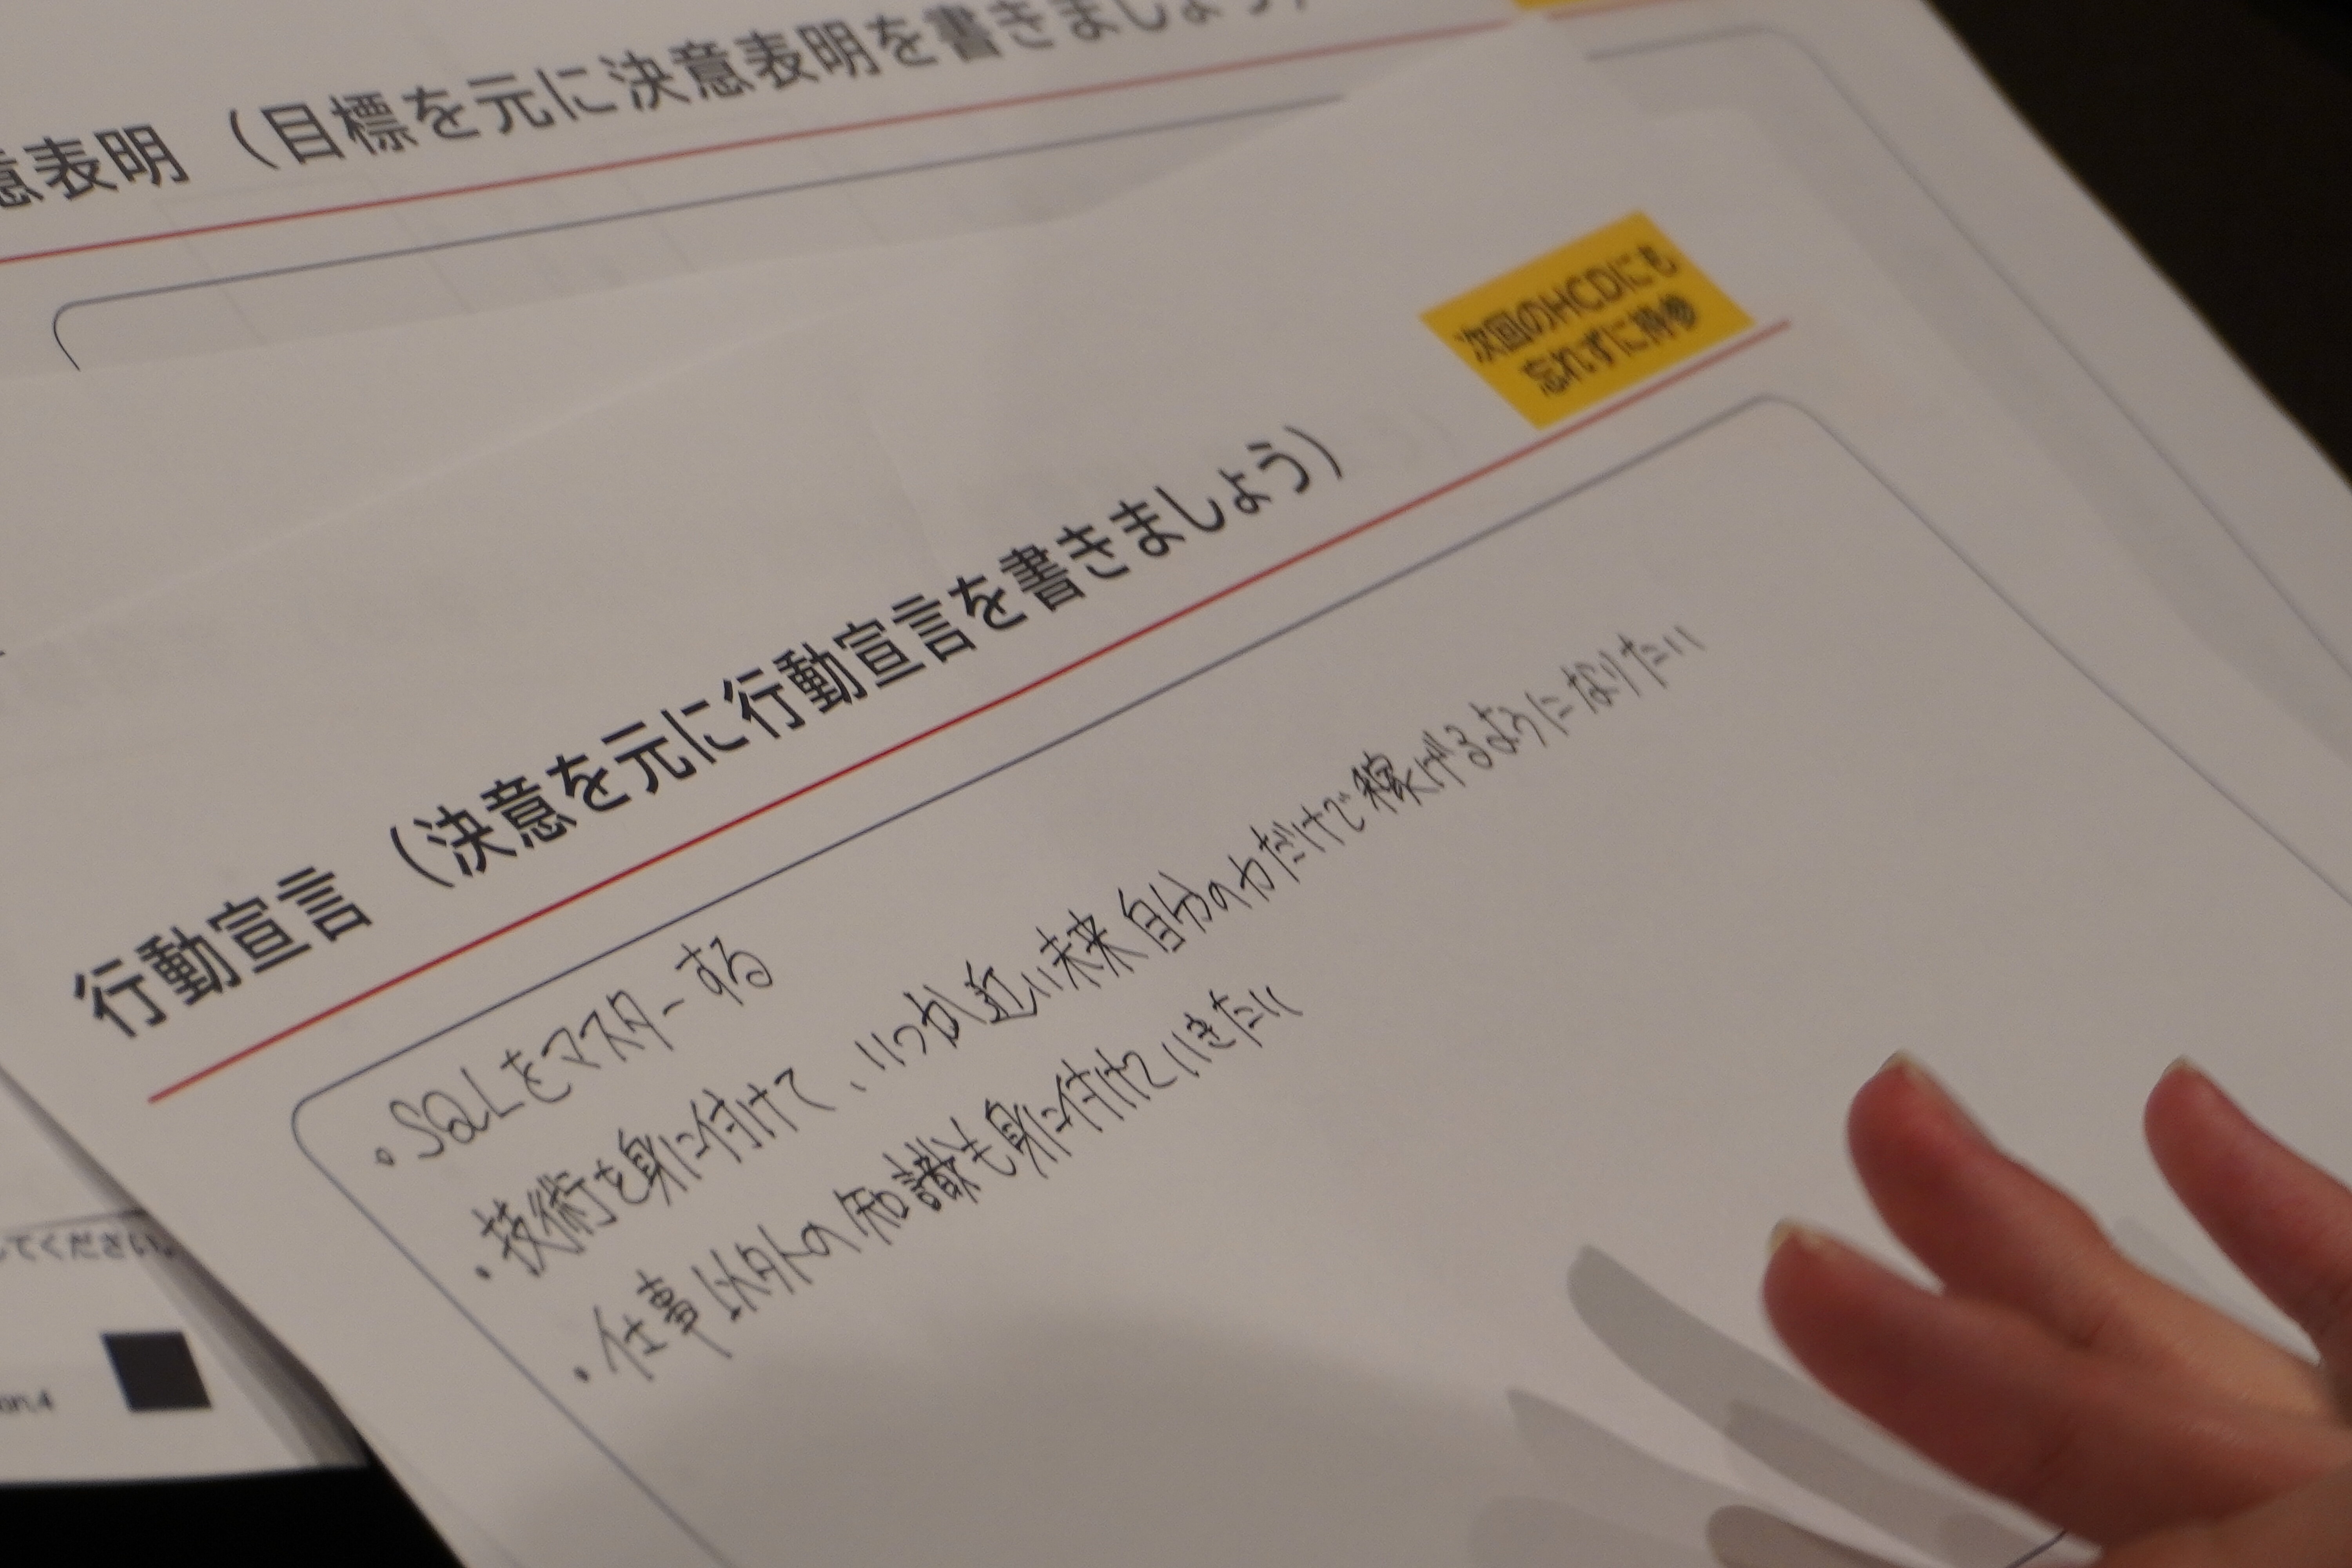 意表明（目標を元に決意表明を書きましょう）
次回のHCDにも
忘れずに持参
行動宣言（決意を元に行動宣言を書きましょう）
・SQLをマスターする
・技術を身に付けて、いつか近い未来自分の力だけで稼げるようになりたい
・仕事以外の知識も身に付けていきたい
てください。
on.4